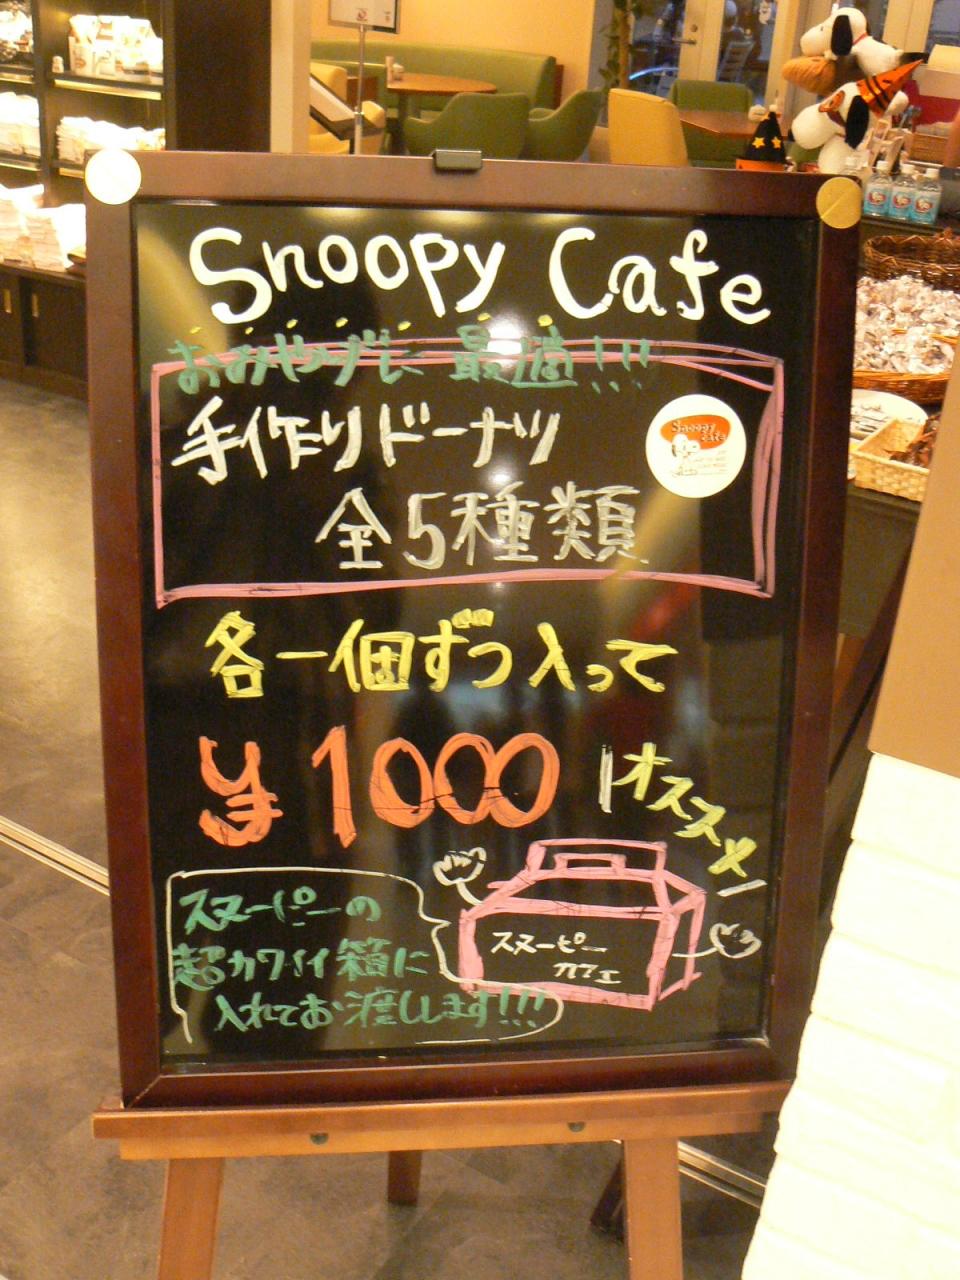 Snoopy Cafe
おみやげに 最適!!!
手作りドーナツ
Snoopy
cafe
全5種類
各一個ずつ入って
¥1000
オススメ
スヌーピーの
超カワイイ箱に
入れてお渡しします!!!
スヌーピー
カフェ